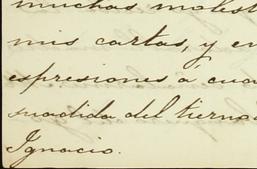 muchas molest
mis cartas, y en
espresiones á cua
madida del tierno
Ignacio.